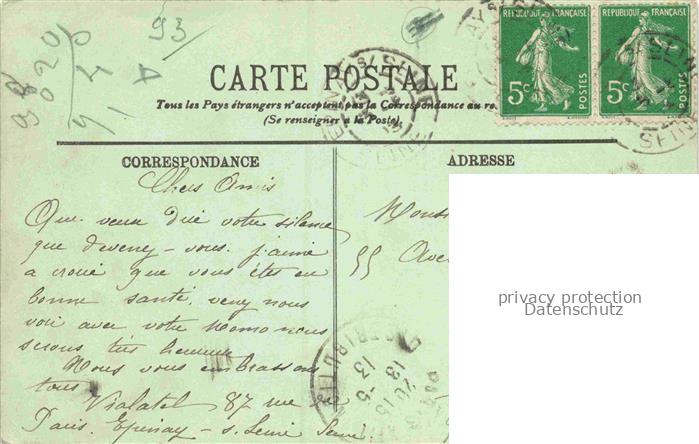 93
REPUBLIQUE FRANÇAISE
REPUBLIQUE FRANÇAISE
5c POSTES
5c POSTES
CARTE POSTALE
Tous les Pays étrangers n'acceptent pas la Correspondance au re
(Se renseigner à la Poste).
CORRESPONDANCE
ADRESSE
Chers Amis
Que veux dire votre silence
que devenez-vous. j'aime
a croire que vous êtes en
bonne santé. venez nous
voir avec votre Momo nous
serons très heureux
Nous vous embrassons
tous
Vialatel 87 rue de
Paris. Epinay-s. Seine Seine
55 Ave
privacy protection
Datenschutz